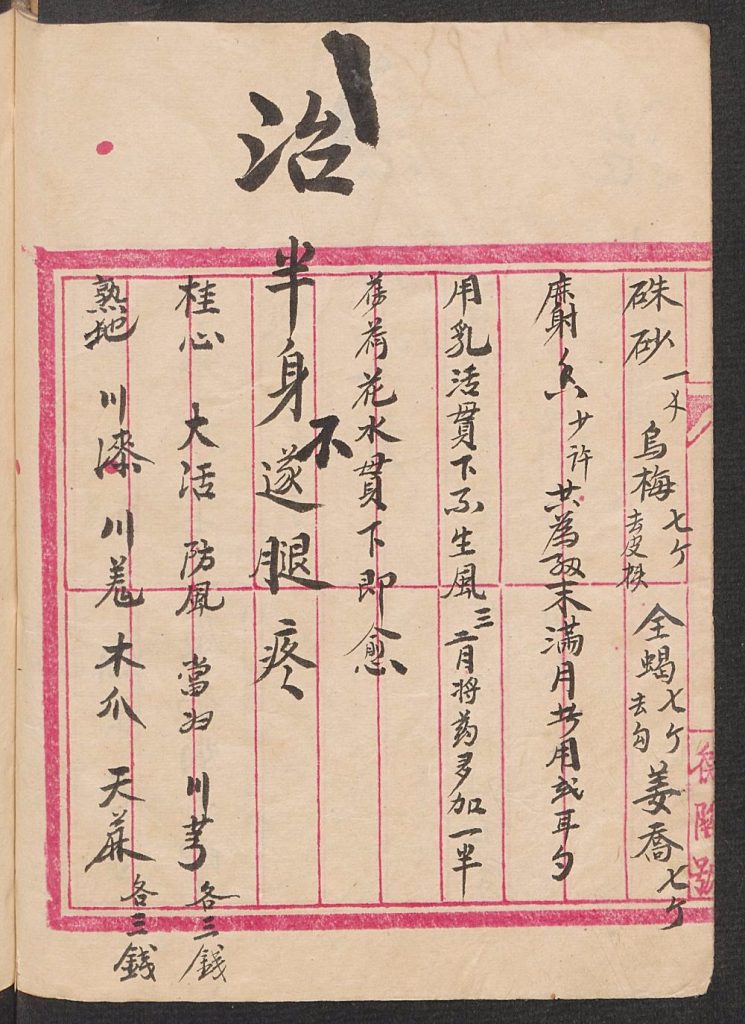 硃砂一 烏梅七ケ去皮核 全蝎七ケ去勾 姜喬七ケ
麝香少許 共為細末滿月共用或耳勺
用乳活貫下不生風三二月将药多加一半
荷花水貫下即愈
治半身不遂腿疼
桂心 大活 防風 當归 川芎 各三錢
熟地 川漆 川羗 木爪 天麻 各三錢